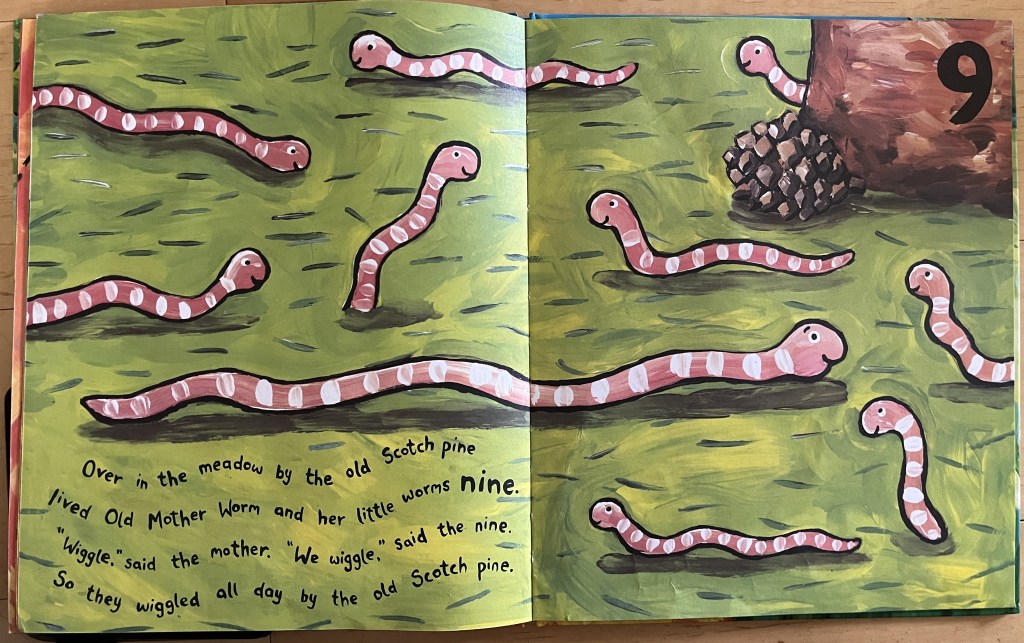 Over in the meadow by the old Scotch pine
lived Old Mother Worm and her little worms nine.
"Wiggle," said the mother. "We wiggle," said the nine.
So they wiggled all day by the old Scotch pine.
9